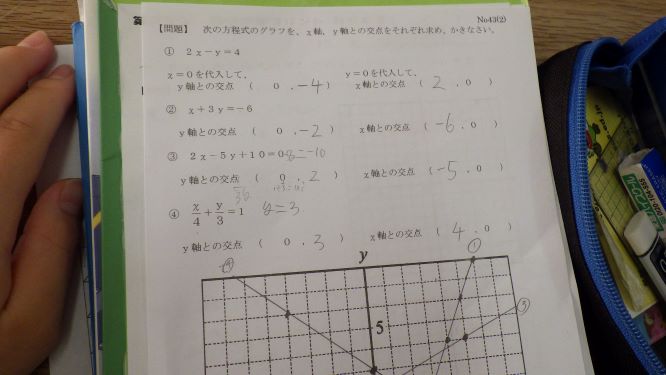 No43(2)
【問題】 次の方程式のグラフを、x軸、y軸との交点をそれぞれ求め、かきなさい。
① 2x－y＝4
x＝0を代入して、 y＝0を代入して、
y軸との交点 ( 0 , －4 ) x軸との交点 ( 2 , 0 )
② x＋3y＝－6
y軸との交点 ( 0 , －2 ) x軸との交点 ( －6 , 0 )
③ 2x－5y＋10＝0 ＝－10
y軸との交点 ( 0 , 2 ) x軸との交点 ( －5 , 0 )
④ x/4＋y/3＝1 y＝3
y軸との交点 ( 0 , 3 ) x軸との交点 ( 4 , 0 )
④ y ①
③
5